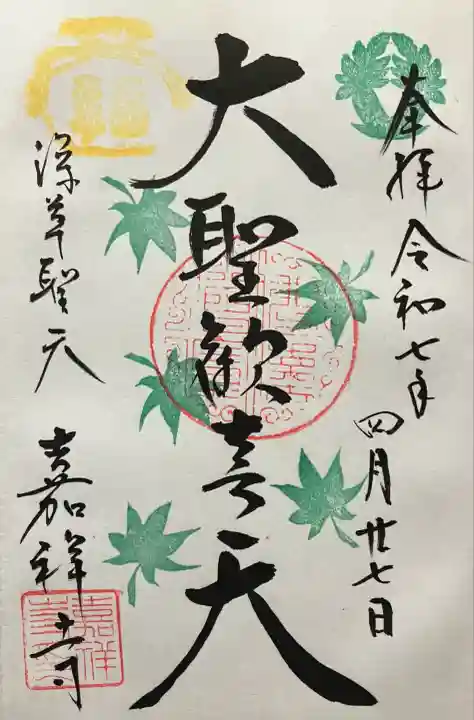 奉拝 令和七年 四月廿七日
大聖歓喜天
深草聖天 嘉祥寺